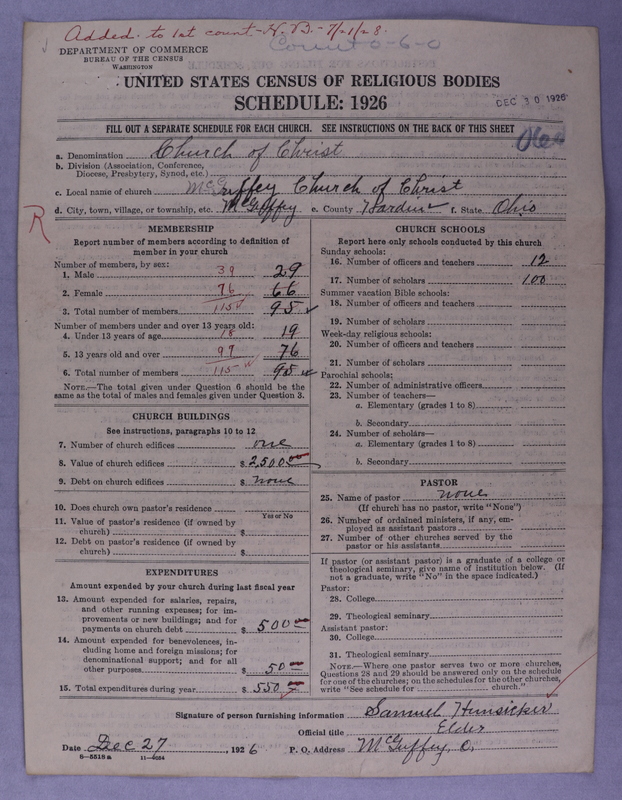 Added to 1st count - H. B. - 7/21/28.
Count 0-6-0
DEPARTMENT OF COMMERCE
BUREAU OF THE CENSUS
WASHINGTON
UNITED STATES CENSUS OF RELIGIOUS BODIES
SCHEDULE: 1926
DEC 30 1926
FILL OUT A SEPARATE SCHEDULE FOR EACH CHURCH. SEE INSTRUCTIONS ON THE BACK OF THIS SHEET
a. Denomination Church of Christ
b. Division (Association, Conference, Diocese, Presbytery, Synod, etc.)
c. Local name of church McGuffey Church of Christ
d. City, town, village, or township, etc. McGuffey e. County Hardin f. State Ohio
R
MEMBERSHIP
Report number of members according to definition of member in your church
Number of members, by sex:
1. Male 39 29
2. Female 76 66
3. Total number of members 115 95
Number of members under and over 13 years old:
4. Under 13 years of age 18 19
5. 13 years old and over 97 76
6. Total number of members 115 95
NOTE.—The total given under Question 6 should be the same as the total of males and females given under Question 3.
CHURCH BUILDINGS
See instructions, paragraphs 10 to 12
7. Number of church edifices one
8. Value of church edifices $2500
9. Debt on church edifices $ none
10. Does church own pastor's residence
Yes or No
11. Value of pastor's residence (if owned by church) $
12. Debt on pastor's residence (if owned by church) $
EXPENDITURES
Amount expended by your church during last fiscal year
13. Amount expended for salaries, repairs, and other running expenses; for improvements or new buildings; and for payments on church debt $ 500
14. Amount expended for benevolences, including home and foreign missions; for denominational support; and for all other purposes $ 50
15. Total expenditures during year $ 550
CHURCH SCHOOLS
Report here only schools conducted by this church
Sunday schools:
16. Number of officers and teachers 12
17. Number of scholars 100
Summer vacation Bible schools:
18. Number of officers and teachers
19. Number of scholars
Week-day religious schools:
20. Number of officers and teachers
21. Number of scholars
Parochial schools:
22. Number of administrative officers
23. Number of teachers—
a. Elementary (grades 1 to 8)
b. Secondary
24. Number of scholars—
a. Elementary (grades 1 to 8)
b. Secondary
PASTOR
25. Name of pastor none
(If church has no pastor, write "None")
26. Number of ordained ministers, if any, employed as assistant pastors
27. Number of other churches served by the pastor or his assistants
If pastor (or assistant pastor) is a graduate of a college or theological seminary, give name of institution below. (If not a graduate, write "No" in the space indicated.)
Pastor:
28. College
29. Theological seminary
Assistant pastor:
30. College
31. Theological seminary
NOTE.—Where one pastor serves two or more churches, Questions 28 and 29 should be answered only on the schedule for one of the churches; on the schedules for the other churches, write "See schedule for church."
Signature of person furnishing information Samuel Hunsicker
Official title Elder
Date Dec 27, 1926 P. O. Address McGuffey, O.
8-5518a 11-4024